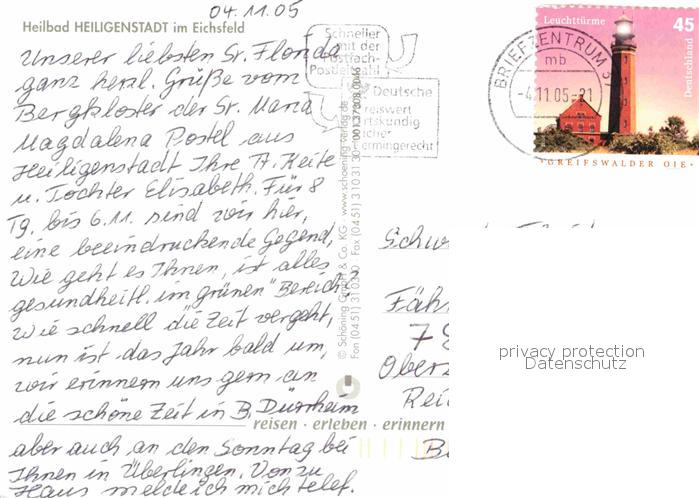 04.11.05
Heilbad HEILIGENSTADT im Eichsfeld
Unserer liebsten Sr. Florida
ganz herzl. Grüße vom
Bergkloster der Sr. Maria
Magdalena Postel aus
Heiligenstadt Ihre A. Keite
u. Tochter Elisabeth. Für 8
Tg. bis 6.11. sind wir hier,
eine beeindruckende Gegend,
Wie geht es Ihnen, ist alles
gesundheitl. im grünen" Bereich?
Wie schnell die Zeit vergeht,
nun ist das Jahr bald um,
wir erinnern uns gern an
die schöne Zeit in B. Dürrheim
aber auch an den Sonntag bei
Ihnen in Überlingen. Von zu
Haus melde ich mich telef.
reisen · erleben · erinnern
© Schöning GmbH & Co. KG · www.schoening-verlag.de
Fax (0451) 31 03 31 30
Schneller
mit der
Postfach-
Postleitzahl
Deutsche
Preiswert
ermingerecht
BRIEFZENTRUM
mb
-4.11.05-21
Leuchttürme
45
Deutschland
GREIFSWALDER OIE
Fähr
Ober
privacy protection
Datenschutz